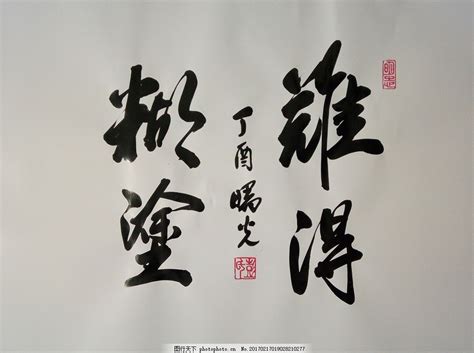 難得
糊塗
丁酉曙光
图行天下 photophoto.cn No.20170217019028210277